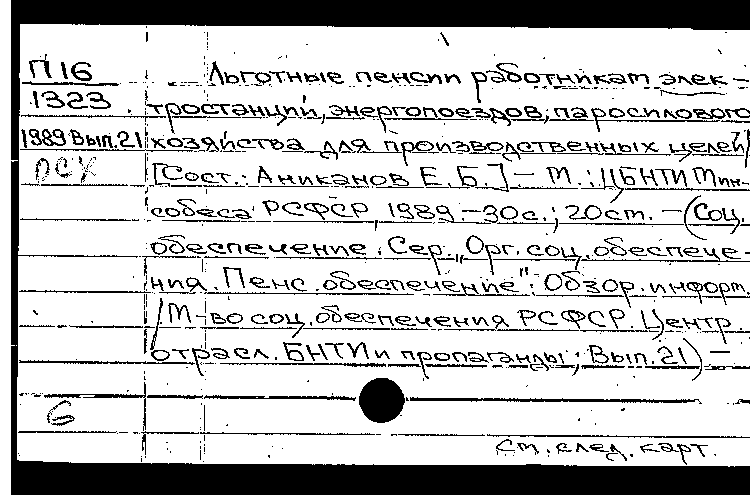 П16
1323
1989 Вып.21
РСХ
Льготные пенсии работникам элек-
тростанций, энергопоездов, паросилового
хозяйства для производственных целей /
[Сост.: Аниканов Е.Б.]. - М.: ЦБНТИ Мин-
собеса РСФСР, 1989. - 30с.; 20см. - (Соц.
обеспечение. Сер. „Орг. соц. обеспече-
ния. Пенс. обеспечение": Обзор. информ.
/ М-во соц. обеспечения РСФСР. Центр.
отрасл. БНТИ и пропаганды; Вып.21) -
6
См. след. карт.